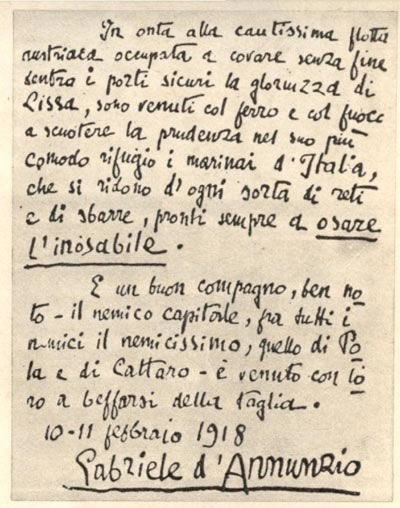 In onta alla cautissima flotta
austriaca occupata a covare senza fine
dentro i porti sicuri la gloriuzza di
Lissa, sono venuti col ferro e col fuoco
a scuotere la prudenza nel suo più
comodo rifugio i marinai d'Italia,
che si ridono d'ogni sorta di reti
e di sbarre, pronti sempre a osare
l'inosabile.
E un buon compagno, ben no
to - il nemico capitale, fra tutti i
nemici il nemicissimo, quello di Po
la e di Cattaro - è venuto con lo
ro a beffarsi della taglia.
10-11 febbraio 1918
Gabriele d'Annunzio